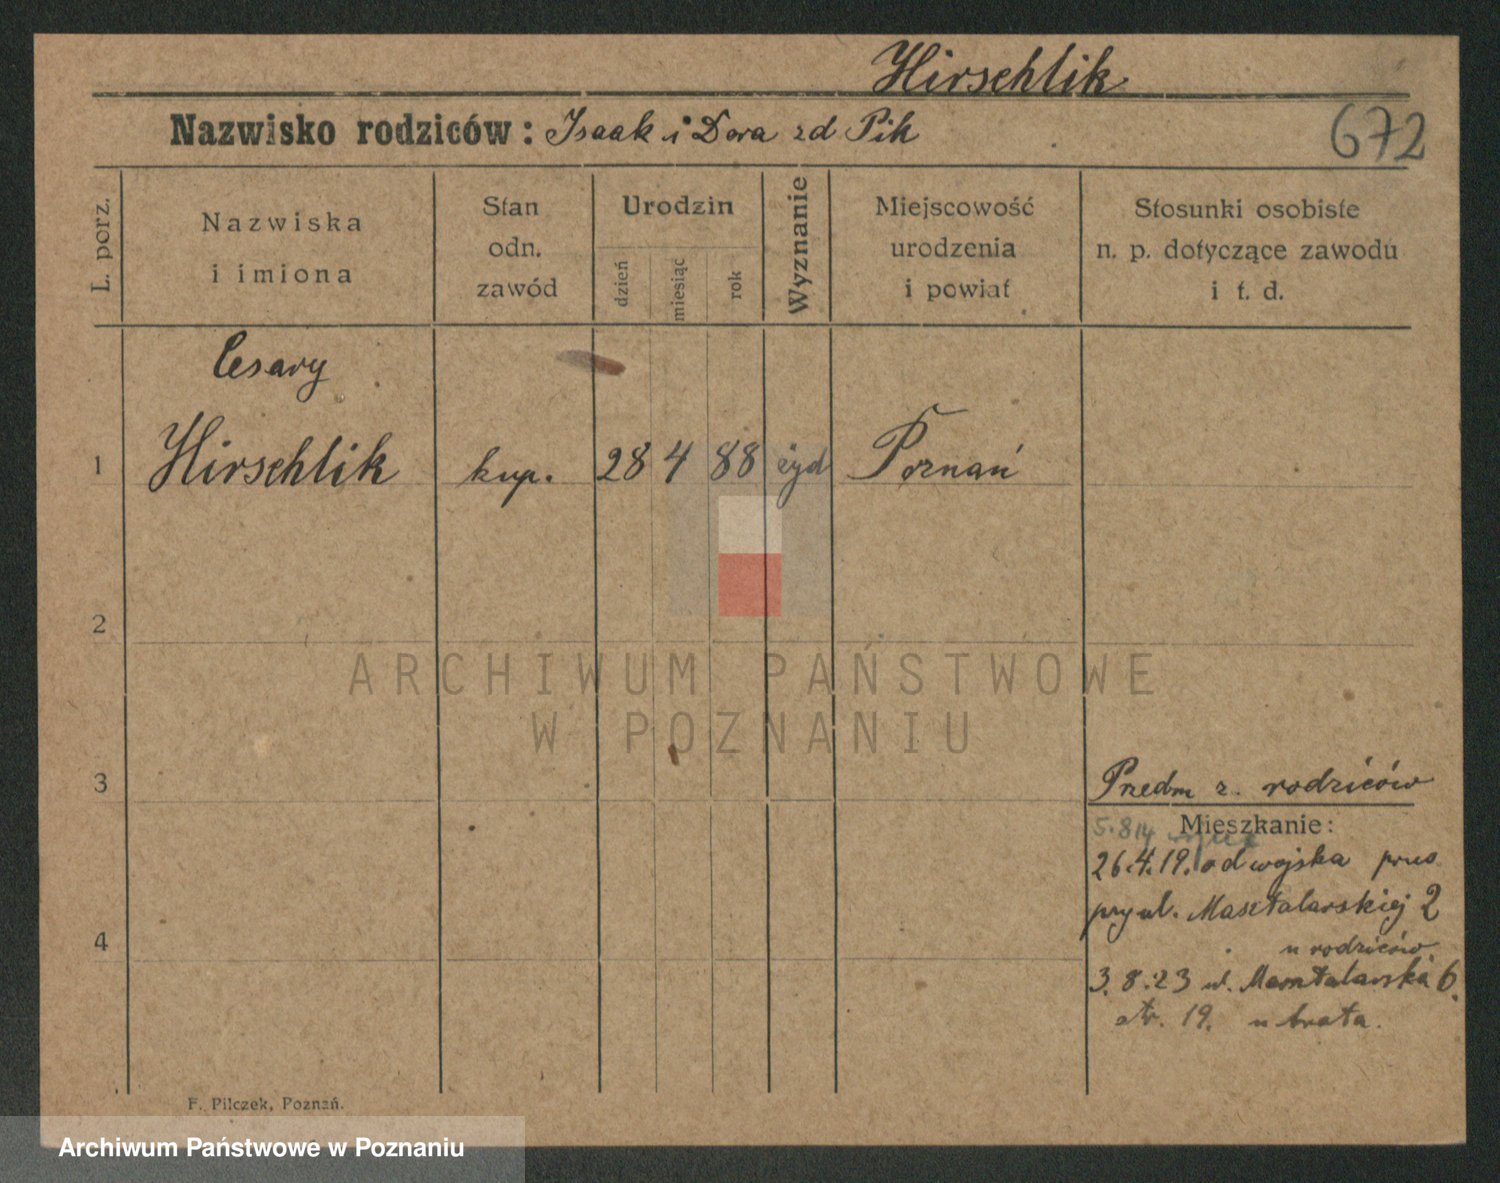 Hirschlik
Nazwisko rodziców: Isaak i Dora zd Pik
672
L. porz.
Nazwiska
i imiona
Stan
odn.
zawód
Urodzin
dzień
miesiąc
rok
Wyznanie
Miejscowość
urodzenia
i powiat
Stosunki osobiste
n. p. dotyczące zawodu
i t. d.
Cesary
1 Hirschlik kup. 28 4 88 żyd Poznań
2
ARCHIWUM PAŃSTWOWE
W POZNANIU
3
Przedm z. rodziców
Mieszkanie:
5.8 14
26.4.19. od wojska prus
przy ul. Masztalarskiej 2
u rodziców
4
3.8.23 ul. Masztalarska 6.
str. 19. u brata.
F. Pilczek, Poznań.
Archiwum Państwowe w Poznaniu